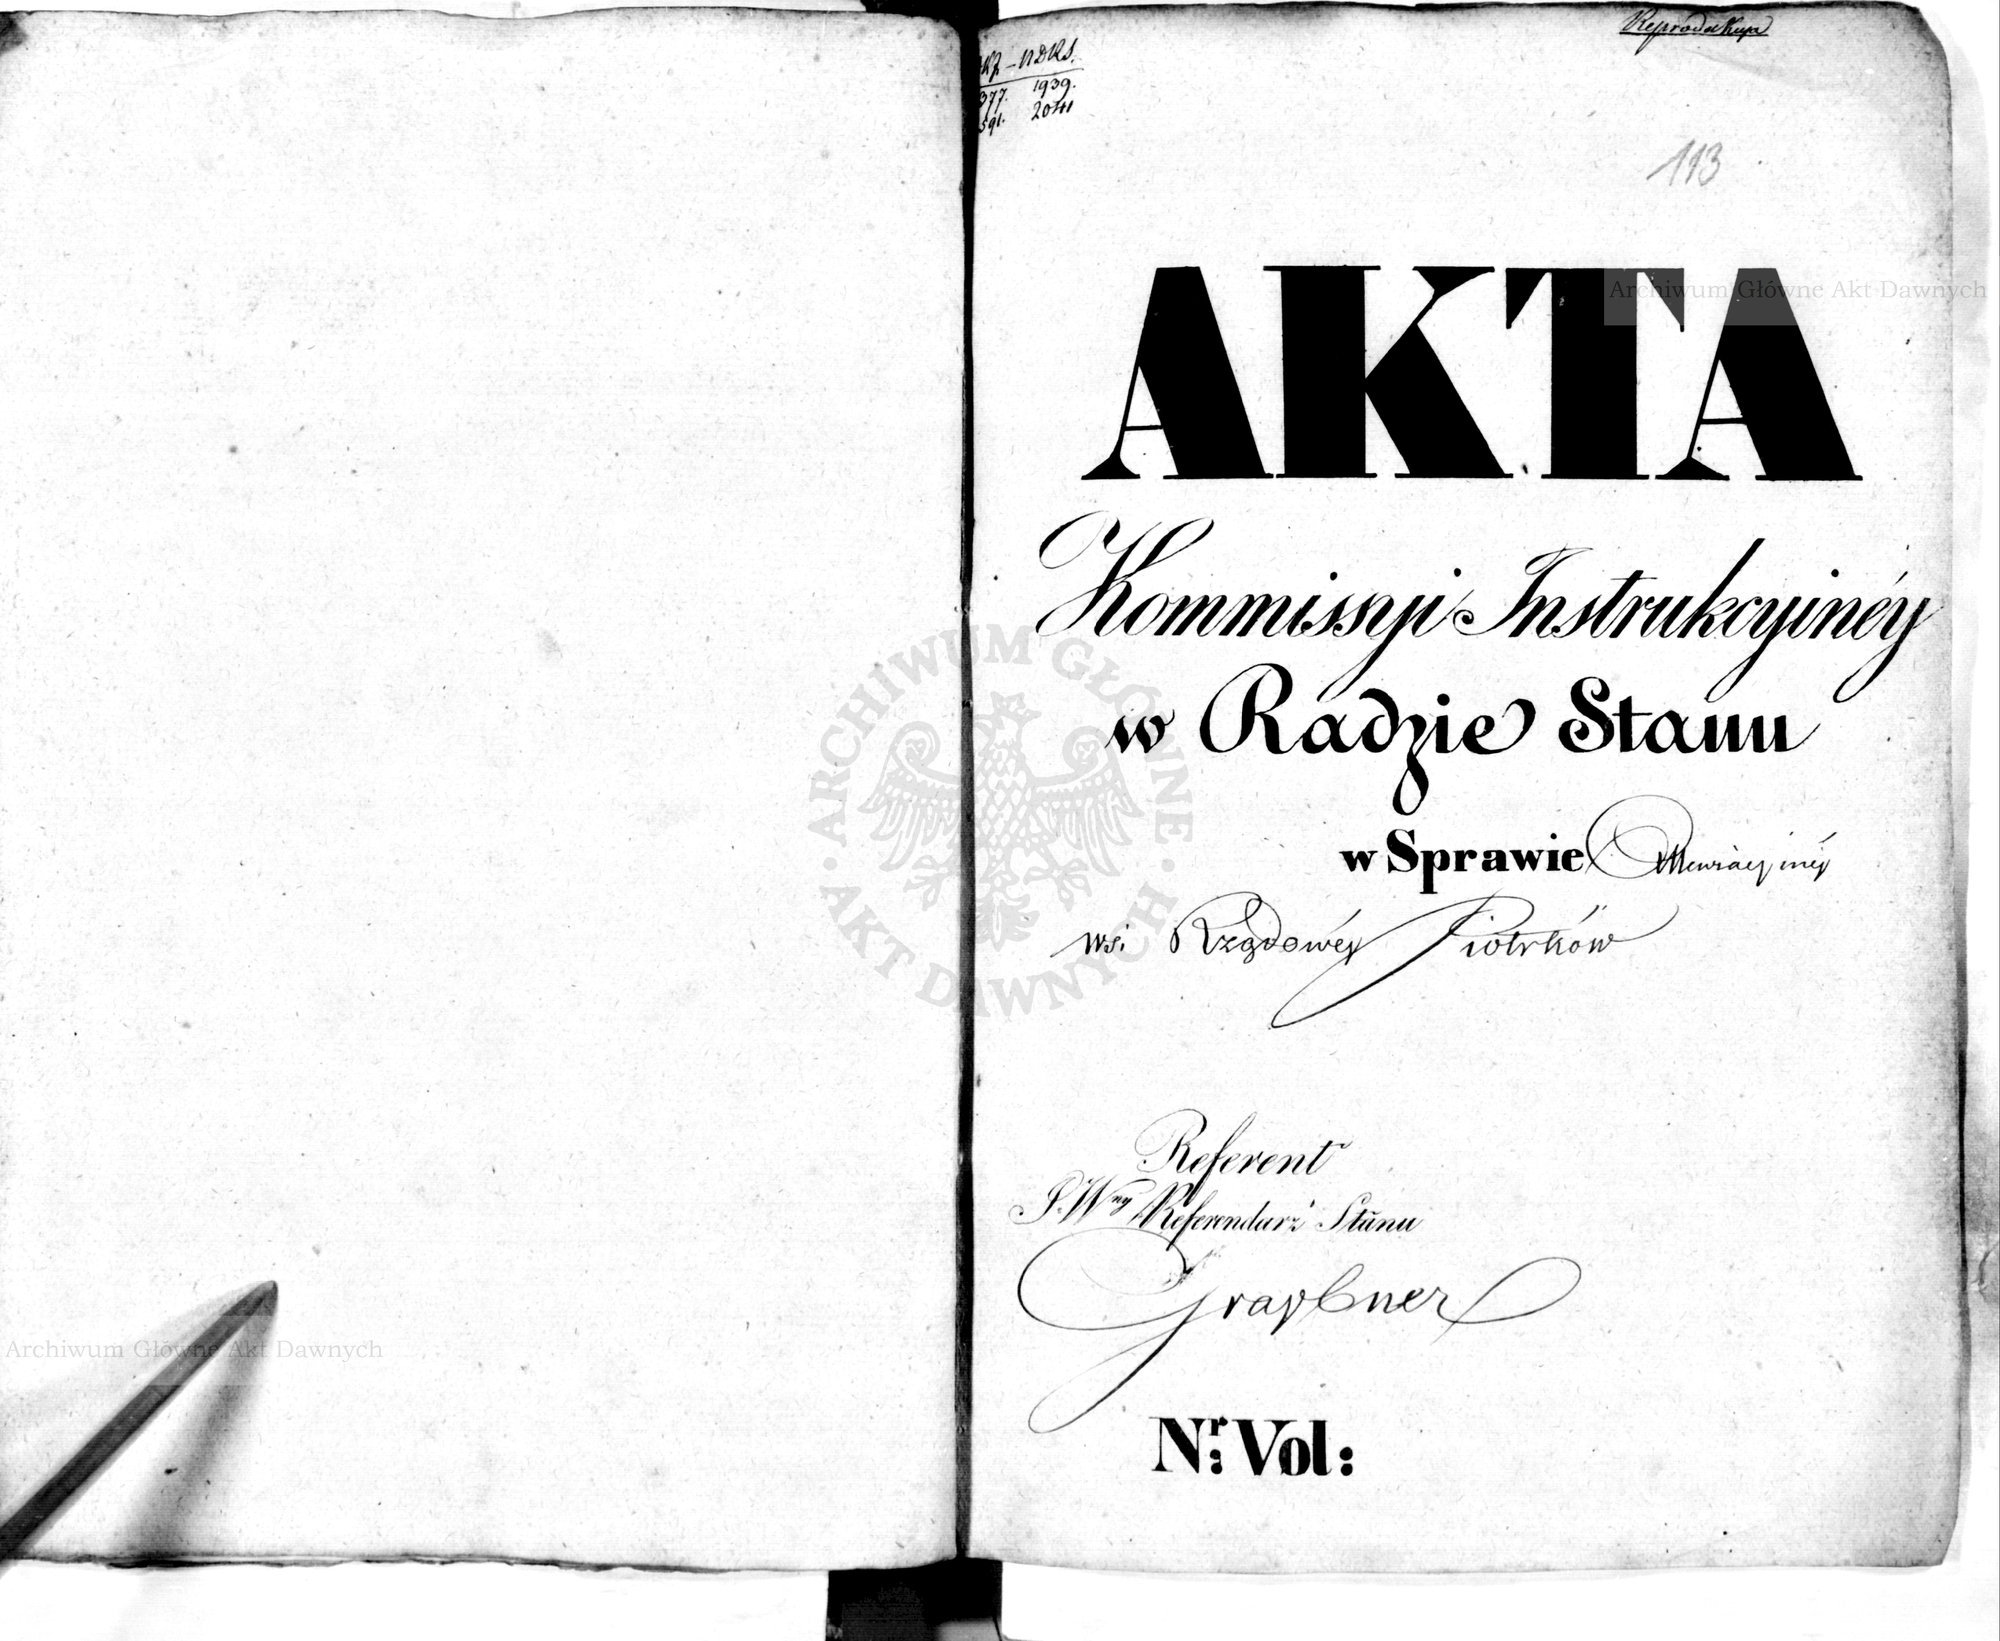 Reprodukcja
KZ – NDKS.
377. 1939.
591. 2041
113
AKTA
Kommissyi Instrukcyinéy
w Radzie Stanu
w Sprawie
wsi Rządowéy Piotrków
Referent
J. Wny Referendarz Stanu
Graybner
Nr: Vol:
Archiwum Główne Akt Dawnych
Archiwum Główne Akt Dawnych
ARCHIWUM GŁÓWNE AKT DAWNYCH